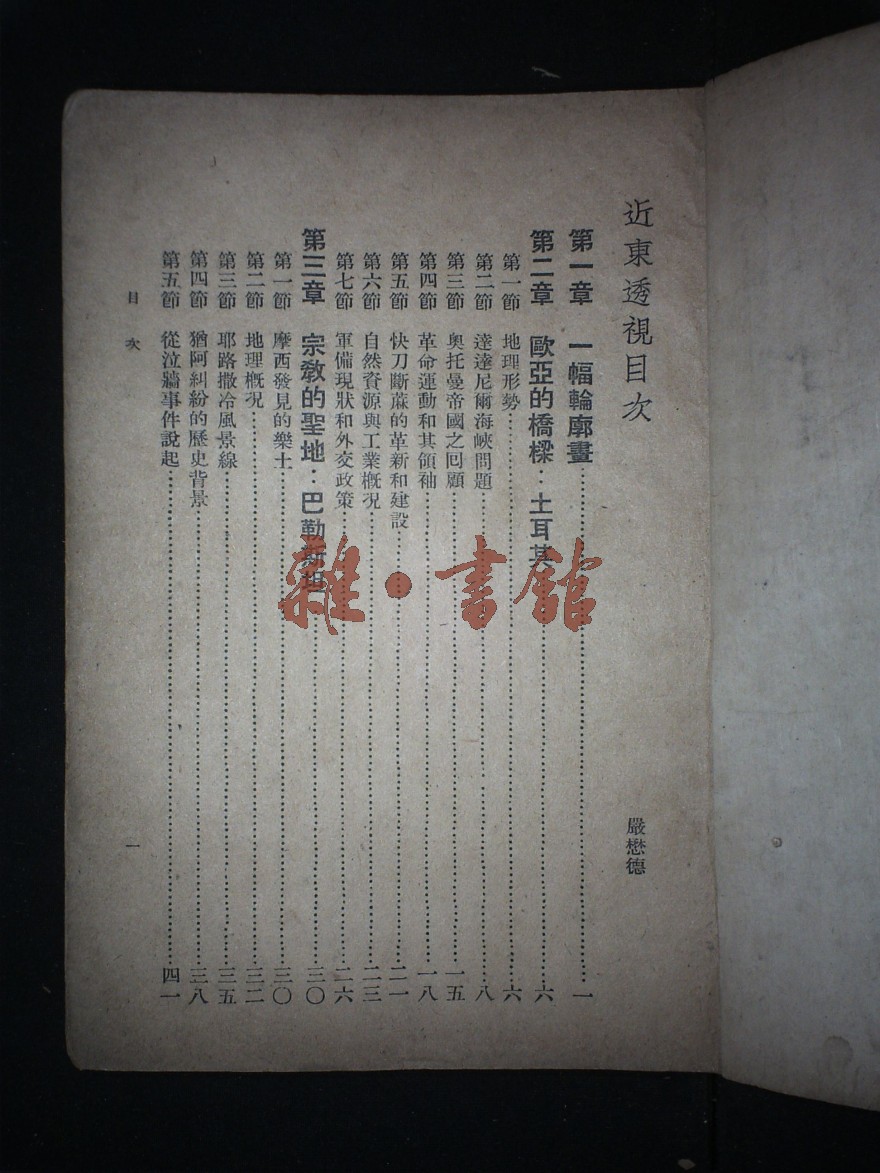 近東透視目次
嚴懋德
第一章 一幅輪廓畫……一
第二章 歐亞的橋樑：土耳其……六
第一節 地理形勢……六
第二節 達達尼爾海峽問題……八
第三節 奧托曼帝國之回顧……一五
第四節 革命運動和其領袖……一八
第五節 快刀斷蔴的革新和建設……二一
第六節 自然資源與工業概況……二三
第七節 軍備現狀和外交政策……二六
第三章 宗教的聖地：巴勒斯坦……三〇
第一節 摩西發見的樂土……三〇
第二節 地理概况……三二
第三節 耶路撒冷風景線……三五
第四節 猶阿糾紛的歷史背景……三八
第五節 從泣牆事件說起……四一
目次
一
雜·書館